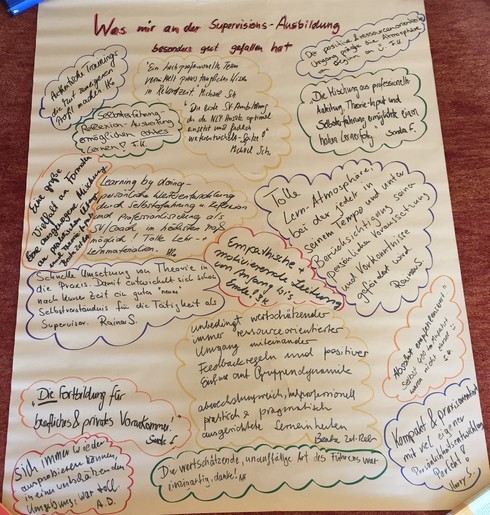 Was mir an der Supervisions-Ausbildung
besonders gut gefallen hat
"Ein hochprofessionelles Team
vom Welt
in Rekordzeit." Michael
"Die beste SV-Ausbildung
optimal
und
Michael
Authentische Trainings
die zur
Profi machen
Selbsterfahrung
Reflexion Auswertung
ermöglichen echtes
Lernen!
Die positive & ressourcenorientierte
Umgang prägte die Atmosphäre
von Beginn an
"Die Mischung aus professioneller
Anleitung, Theorie-Input und
Selbsterfahrung ermöglichte einen
hohen Lernerfolg
Sandra E.
Eine große
Vielfalt an Formaten
Eine ausgewogene Mischung
Learning by doing -
persönliche Weiterentwicklung
durch Selbsterfahrung + Reflexion
und Professionalisierung als
SV/Coach im höchsten Maß
möglich! Tolle Lehr- +
Lernmaterialien.
Tolle
Lern-Atmosphäre,
bei der jede/r in
seinem Tempo und unter
Berücksichtigung seiner
persönlichen Voraussetzung
und Vorkenntnisse
gefördert wird
Rainer S.
Empathische +
motivierende Leitung
von Anfang bis
Ende!
Schnelle Umsetzung von Theorie in
die Praxis. Damit entwickelte sich schon
nach kurzer Zeit ein gutes "neues"
Selbstverständnis für die Tätigkeit als
Supervisor. Rainer S.
unbedingt wertschätzender
immer ressourcenorientierter
Umgang miteinander
Feedbackregeln und positiver
Einfluss auf Gruppendynamik
abwechslungsreich, hochprofessionell
praktisch & pragmatisch
ausgerichtete Lerneinheiten
Absolut empfehlenswert
"Die Fortbildung für
berufliches & privates Vorankommen."
Sandra E.
Sich immer wieder
ausprobieren können,
in einer wertschätzenden
Umgebung, war toll.
A.D.
Die wertschätzende, unauffällige Art des Führens war
einzigartig, danke!
Kompakt & praxisorientiert
mit viel eigener
Persönlichkeitsentwicklung
Perfekt!
Harry S.